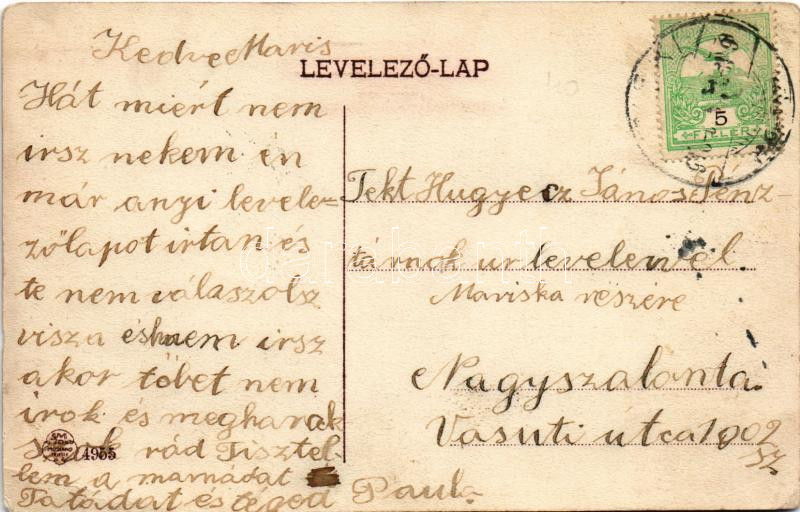 Kedve Maris
LEVELEZŐ-LAP
Hát miért nem
irsz nekem én
már anyi levele=
zőlapot irtan és
te nem válaszolsz
visza és nem irsz
akor többet nem
irok és megharak
rád Tisztel
lem a mamádat
Tatádat és tégod Paula
4955
5
FILLÉR
Tekt Hugyecz János Pénz-
tárnok ur levelewel
Mariska részére
Nagyszalonta
Vasuti útca 1902